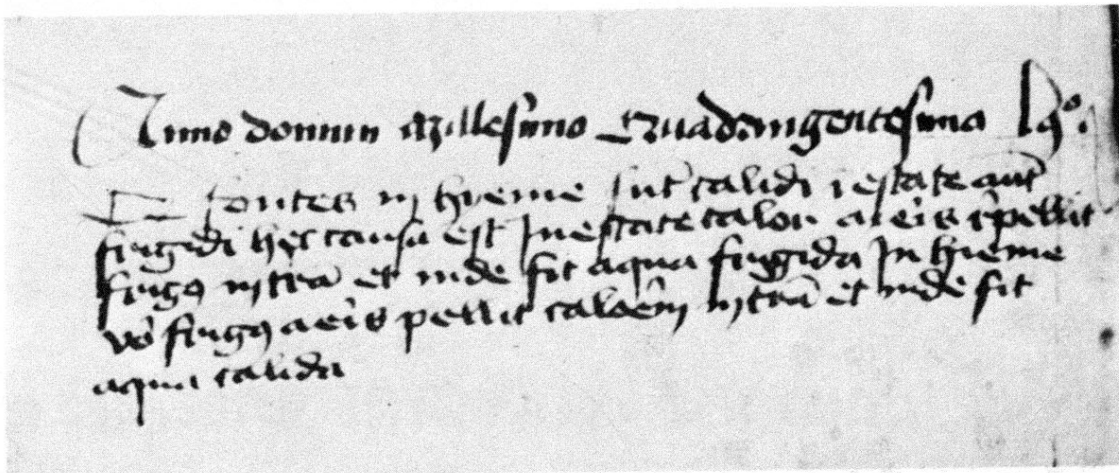 Anno domini Millesimo Quadringentesimo
fontes in hyeme sūt calidi i estate aūt
frigidi hec causa est In estate calor aeris īpellit
frigꝰ in trā et inde fit aqua frigida In hieme
vº frigꝰ aeris pellit calorē in trā et inde fit
aqua calida